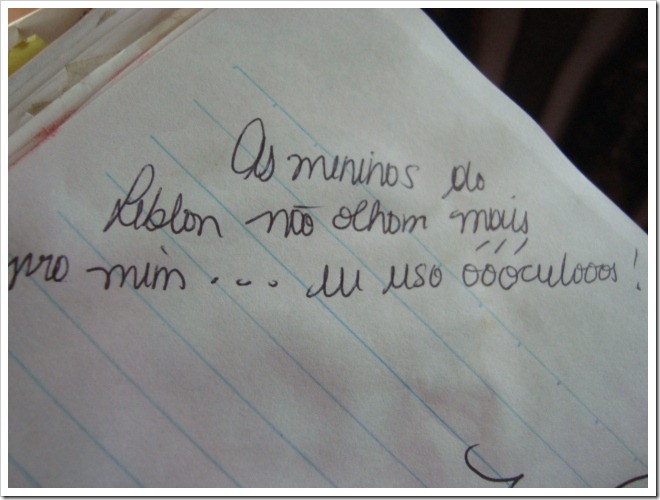 As meninas do
Leblon não olham mais
pra mim... eu uso óóóculooos!